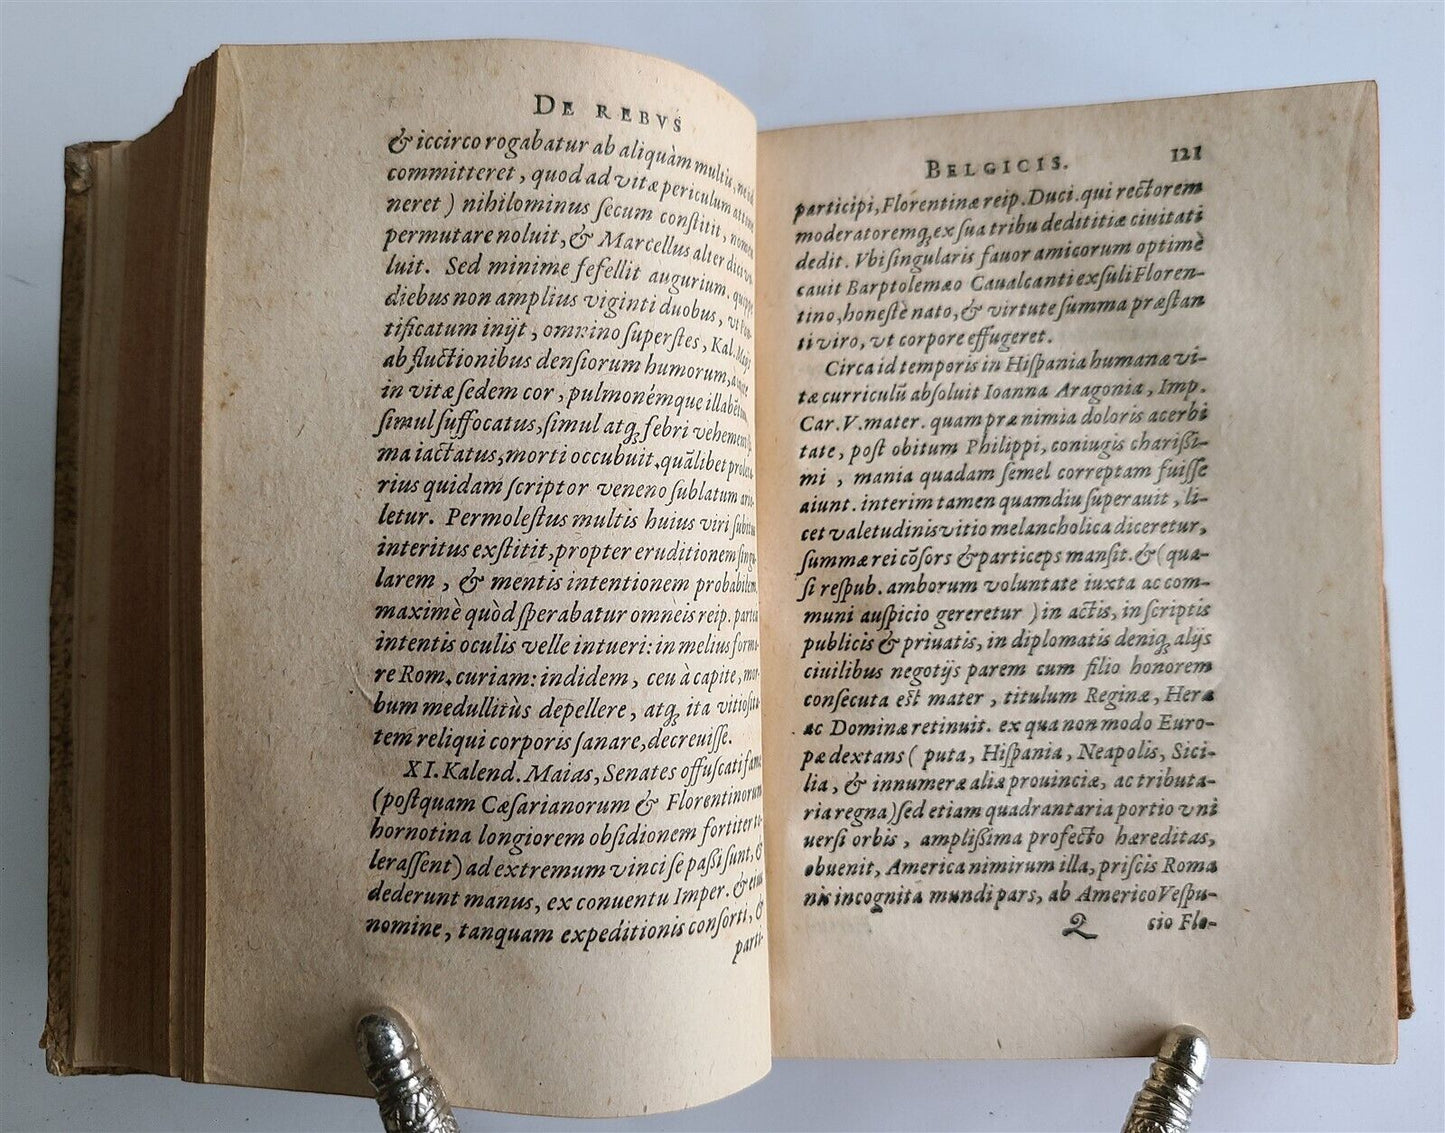 DE REBVS
& iccirco rogabatur ab aliquàm multis, ne id
committeret, quod ad vitæ periculum
neret) nihilominus ſecum conſtitit, nomen
permutare noluit, & Marcellus alter dici
luit. Sed minime fefellit augurium. quippe
diebus non amplius viginti duobus, vt
tificatum inijt, omnino ſuperſtes, Kal.
ab fluctionibus denſiorum humorum,
in vitæ ſedem cor, pulmonémque
ſimul ſuffocatus, ſimul atq; febri
ma iactatus, morti occubuit. quãlibet
rius quidam ſcriptor veneno ſublatum
letur. Permoleſtus multis huius viri
interitus exſtitit, propter eruditionem
larem, & mentis intentionem probabilem
maximè quòd ſperabatur omneis reip.
intentis oculis velle intueri: in melius
re Rom. curiam: indidem, ceu à capite, mor-
bum medullitùs depellere, atq; ita
tem reliqui corporis ſanare, decreuiſſe.
XI. Kalend. Maias, Senates offuſcati fame
(poſtquam Cæſarianorum & Florentinorum
hornotina longiorem obſidionem fortiter
leraſſent) ad extremum vinci ſe paßi ſunt, &
dederunt manus, ex conuentu Imper. & eius
nomine, tanquam expeditionis conſorti, &
parti-
BELGICIS. 121
participi, Florentinæ reip. Duci. qui rectorem
moderatoremq; ex ſua tribu dedititiæ ciuitati
dedit. Vbi ſingularis fauor amicorum optimè
cauit Barptolemæo Caualcanti exſuli Floren-
tino, honeſtè nato, & virtute ſumma præſtan
ti viro, vt corpore effugeret.
Circa id temporis in Hiſpania humanæ vi-
tæ curriculũ abſoluit Ioanna Aragonia, Imp.
Car. V. mater. quam præ nimia doloris acerbi
tate, poſt obitum Philippi, coniugis chariſſi-
mi, mania quadam ſemel correptam fuiſſe
aiunt. interim tamen quamdiu ſuperauit, li-
cet valetudinis vitio melancholica diceretur,
ſummæ rei cõſors & particeps manſit. & (qua-
ſi reſpub. amborum voluntate iuxta ac com-
muni auſpicio gereretur) in actis, in ſcriptis
publicis & priuatis, in diplomatis deniq; alijs
ciuilibus negotijs parem cum filio honorem
conſecuta eſt mater, titulum Reginæ, Heræ
ac Dominæ retinuit. ex qua non modo Euro-
pæ dextans (puta, Hiſpania, Neapolis, Sici-
lia, & innumeræ aliæ prouinciæ, ac tributa-
ria regna) ſed etiam quadrantaria portio vni
uerſi orbis, ampliſſima profecto hæreditas,
obuenit, America nimirum illa, priſcis Roma
nis incognita mundi pars, ab Americo Veſpu-
Q cio Flo-